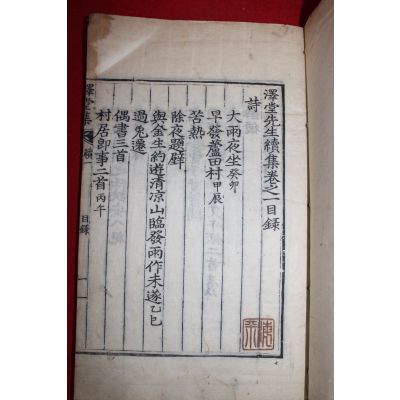 澤堂先生續集卷之一目錄
詩
大雨夜坐癸卯
早發蘆田村甲辰
苦熱
與金生約遊清凉山臨發雨作未遂乙巳
除夜題壁
過兎遷
偶書三首
村居卽事二首丙午
澤堂集
目錄